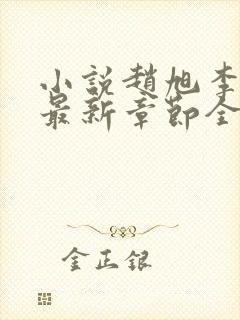 小説趙旭李
最新章節全
金正銀